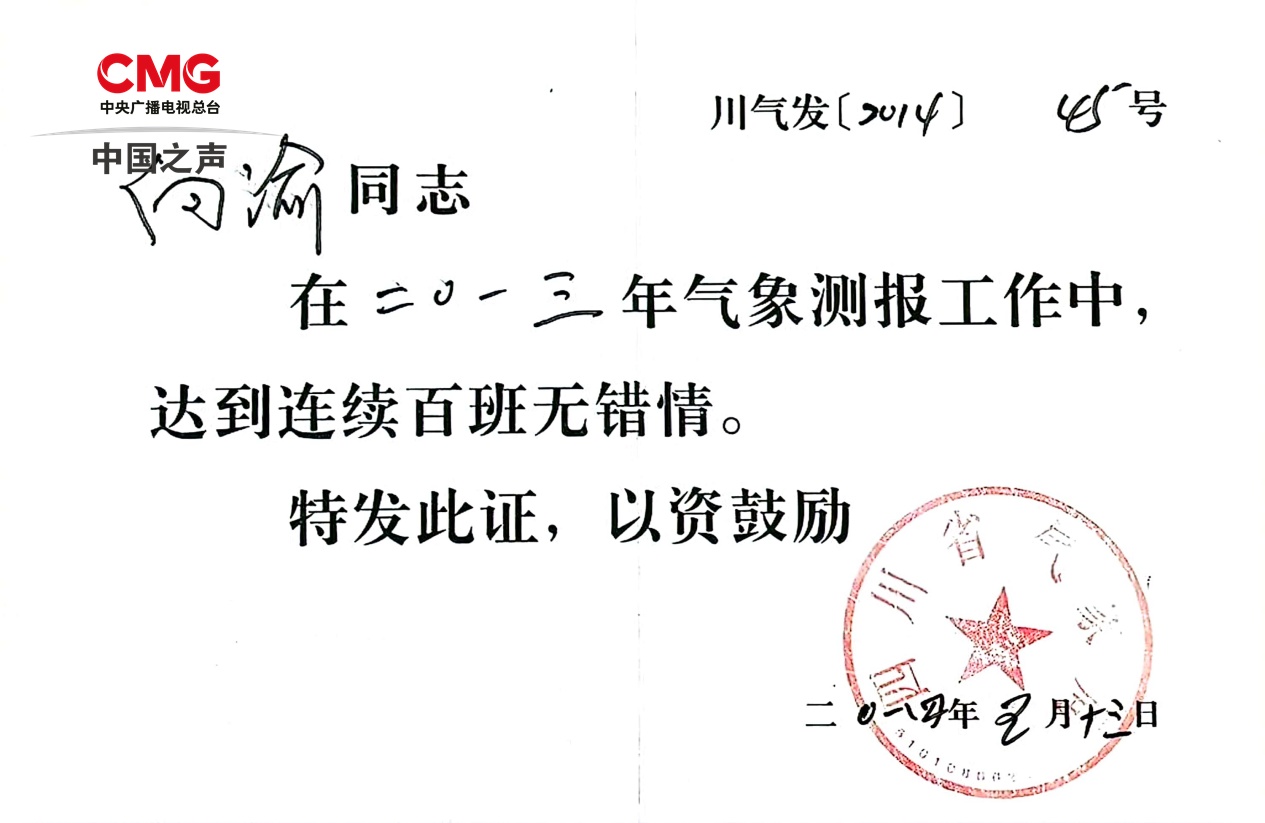 CMG
中央广播电视总台
中国之声
川气发〔2014〕 45号
向渝同志
在二0一三年气象测报工作中，
达到连续百班无错情。
特发此证，以资鼓励
四川省气象局
二0一四年 五月十三日